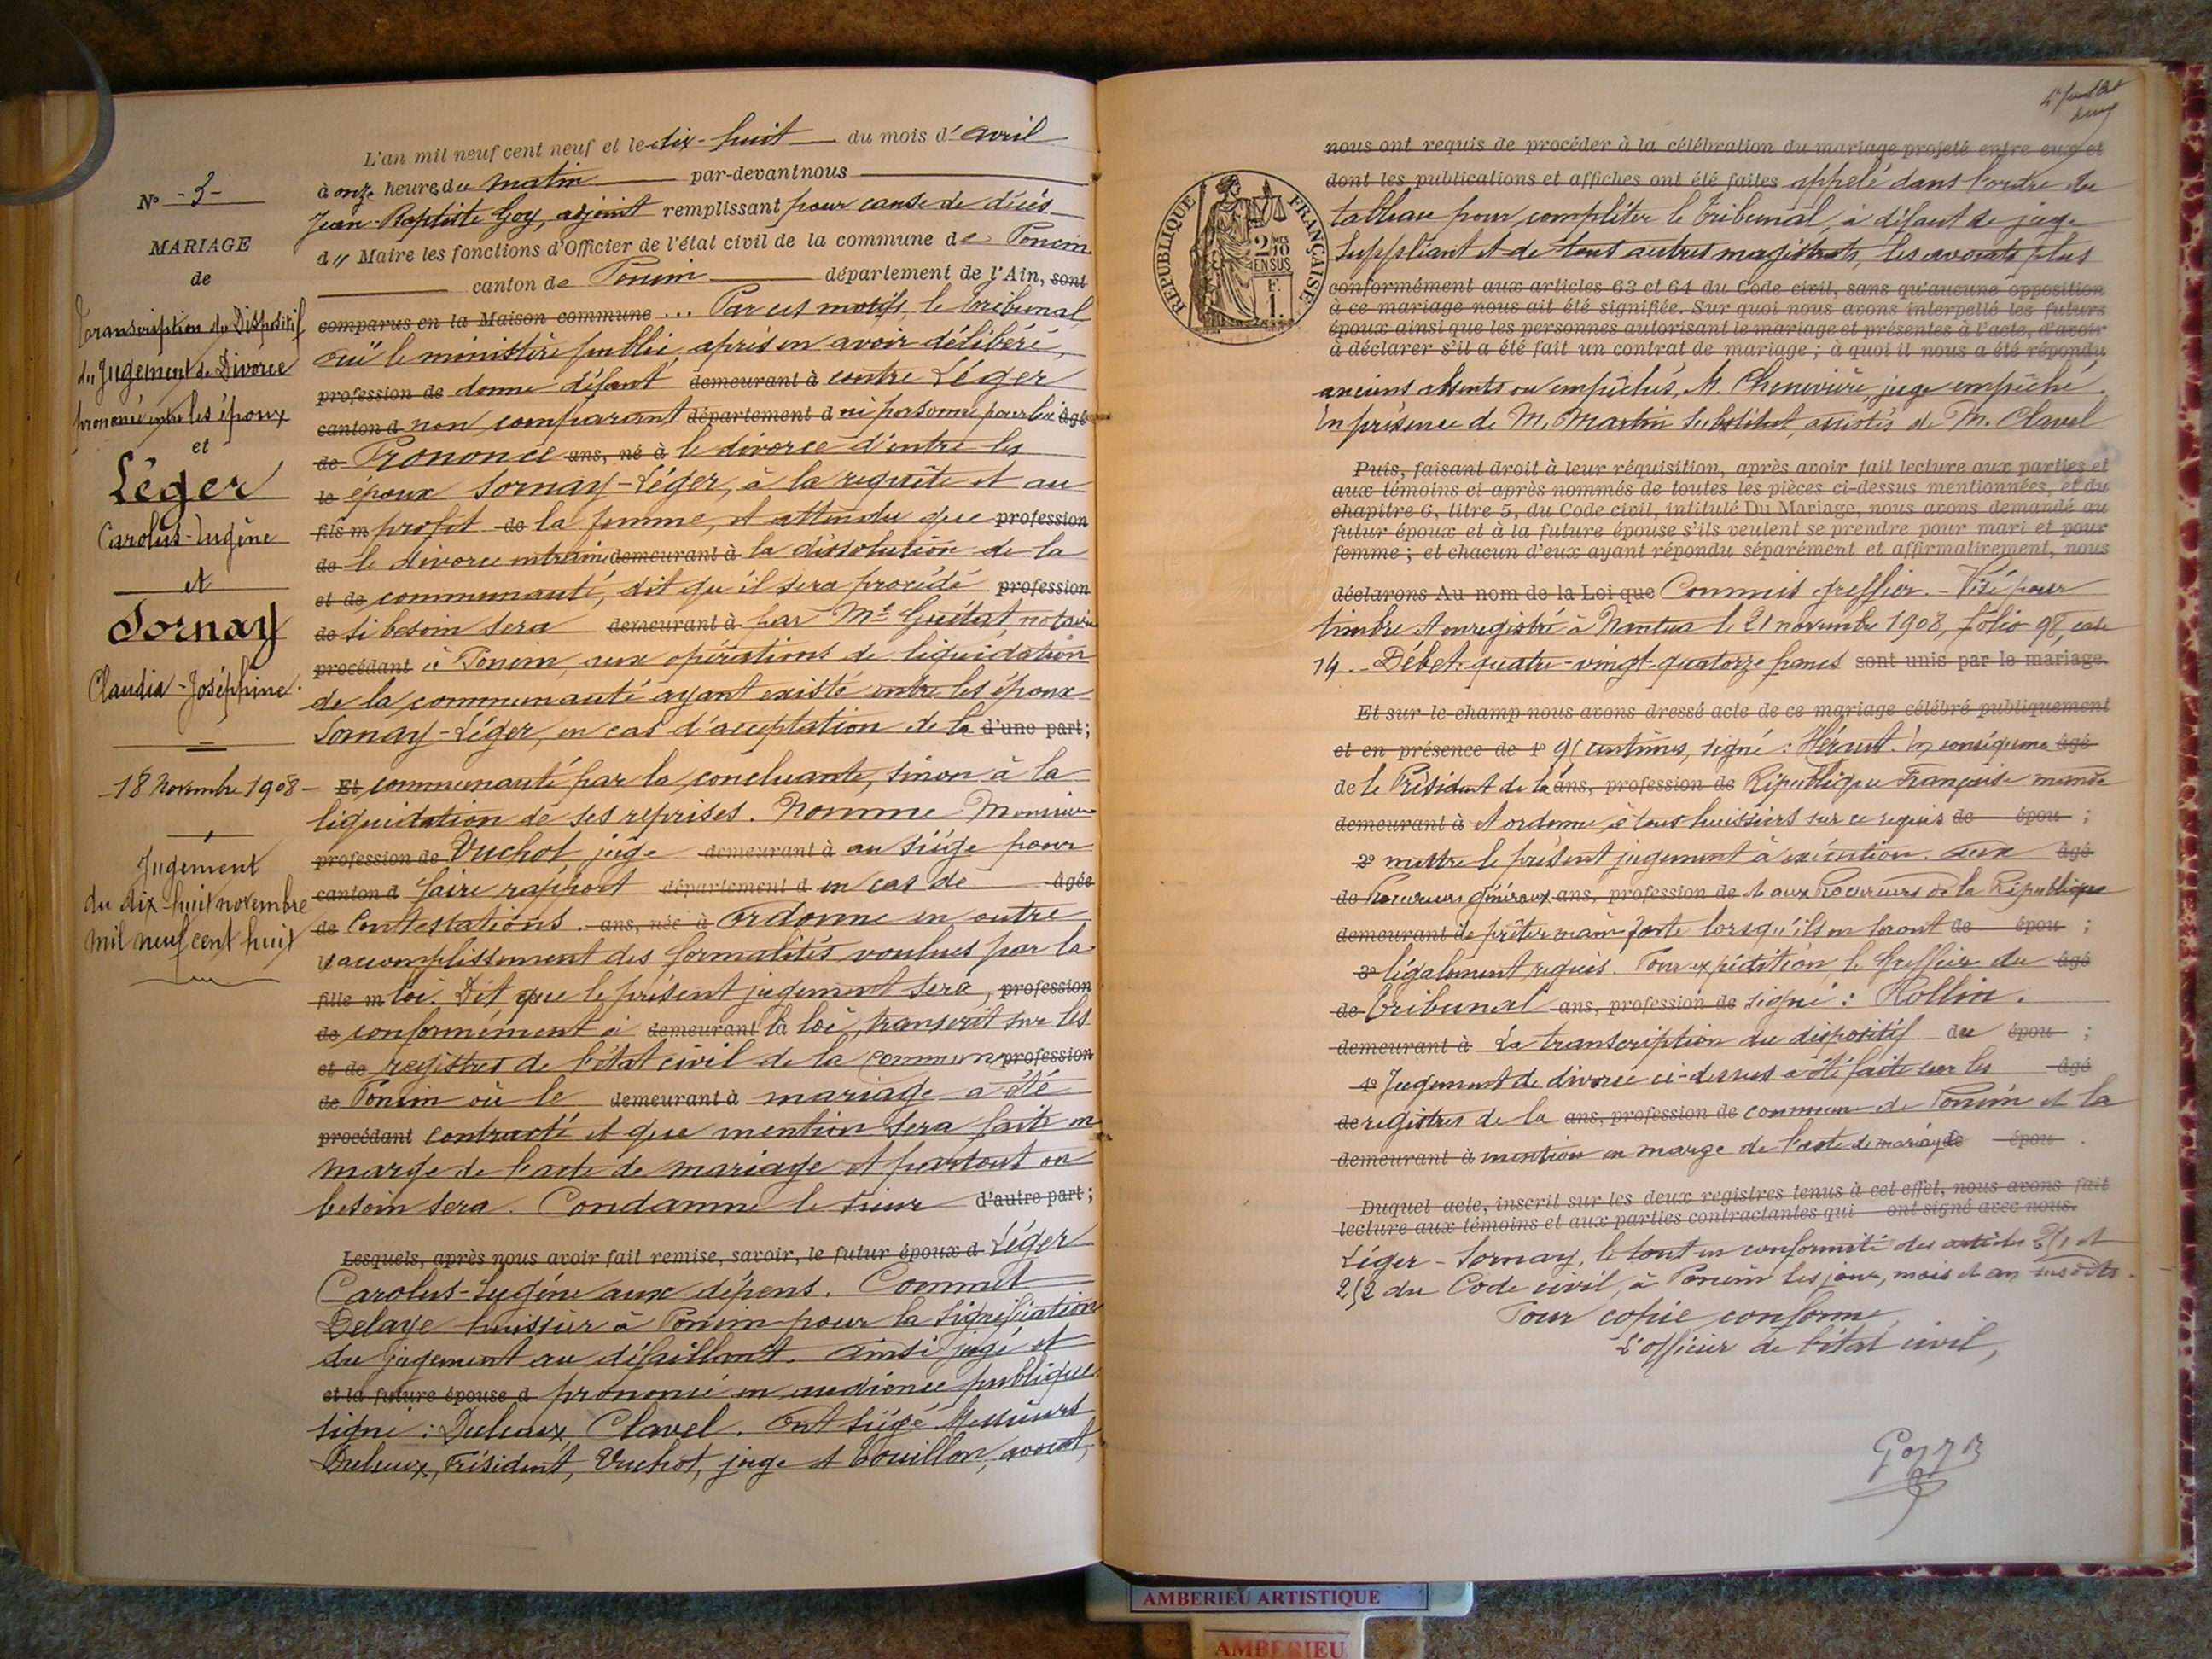 N° - 3 -
MARIAGE
de
Transcription du Dispositif
du Jugement de Divorce
prononcé entre les époux
et
Léger
Carolus-Eugène
et
Sornay
Claudia-Joséphine.
18 Novembre 1908
Jugement
du dix-huit novembre
mil neuf cent huit
L'an mil neuf cent neuf et le dix-huit du mois d'avril
à onze heures du matin par-devant nous
Jean-Baptiste Goy, adjoint remplissant pour cause de décès
d" Maire les fonctions d'Officier de l'état civil de la commune de Poncin
canton de Poncin département de l'Ain, sont
comparus en la Maison commune ... Par ces motifs, le Tribunal
ouï le ministère public, après en avoir délibéré,
profession de donne défaut demeurant à contre Léger
canton d non comparant département d ni personne pour lui âgé
de Prononce ans, né à le divorce d'entre les
le époux Sornay-Léger, à la requête et au
fils m profit de la femme, et attendu que profession
de le divorce entraine demeurant à la dissolution de la
et de communauté, dit qu'il sera procédé profession
de si besoin sera demeurant à par Me Guétat notaire
procédant à Poncin, aux opérations de liquidation
de la communauté ayant existé entre les époux
Sornay-Léger, en cas d'acceptation de la d'une part;
Et communauté par la concluante, sinon à la
liquidation de ses reprises. Nomme Monsieur
profession de Vuchot juge demeurant à au siège pour
canton d faire rapport département d en cas de âgée
de Contestations. ans, née à Ordonne en outre
l'accomplissement des formalités voulues par la
fille m loi. Dit que le présent jugement sera, profession
de conformément à demeurant la loi, transcrit sur les
et de registres de l'état civil de la commune profession
de Poncin où le demeurant à mariage a été
procédant contracté et que mention sera faite en
marge de l'acte de mariage et partout où
besoin sera. Condamne le sieur d'autre part;
Lesquels, après nous avoir fait remise, savoir, le futur époux d Léger
Carolus-Eugène aux dépens. Commet
Delaye huissier à Poncin pour la signification
du jugement au défaillant. Ainsi jugé et
et la future épouse d prononcé en audience publique
signé: Duleux, Clavel. Ont siégé Messieurs
Duleux, Président, Vuchot, juge et Bouillon, avocat,
nous ont requis de procéder à la célébration du mariage projeté entre eux et
dont les publications et affiches ont été faites appelé dans l'ordre du
tableau pour compléter le tribunal, à défaut de juge
suppléant et de tous autres magistrats, les avocats plus
RÉPUBLIQUE FRANÇAISE
2/10 EN SUS
F. 1.
conformément aux articles 63 et 64 du Code civil, sans qu'aucune opposition
à ce mariage nous ait été signifiée. Sur quoi nous avons interpellé les futurs
époux ainsi que les personnes autorisant le mariage et présentes à l'acte, d'avoir
à déclarer s'il a été fait un contrat de mariage ; à quoi il nous a été répondu
anciens absents ou empêchés, M. Chenevière, juge empêché.
En présence de M. Martin Substitut, assistés de M. Clavel
Puis, faisant droit à leur réquisition, après avoir fait lecture aux parties et
aux témoins ci après nommés de toutes les pièces ci-dessus mentionnées, et du
chapitre 6, titre 5, du Code civil, intitulé Du Mariage, nous avons demandé au
futur époux et à la future épouse s'ils veulent se prendre pour mari et pour
femme ; et chacun d'eux ayant répondu séparément et affirmativement, nous
déclarons Au nom de la Loi que Commis greffier. - Visé pour
timbre et enregistré à Nantua le 21 novembre 1908, folio 98, case
14. - Débet: quatre-vingt-quatorze francs sont unis par le mariage.
Et sur-le-champ nous avons dressé acte de ce mariage célébré publiquement
et en présence de 1° 91 centimes, signé: Hérault. En conséquence âgé
de le Président de la ans, profession de République Française mande
demeurant à et ordonne à tous huissiers sur ce requis de épou ;
2° mettre le présent jugement à exécution. aux âgé
de Procureurs généraux ans, profession de et aux Procureurs de la République
demeurant de prêter main forte lorsqu'ils en seront de épou ;
3° légalement requis. Pour expédition, le Greffier du âgé
de tribunal ans, profession de signé: Rollin.
demeurant à La transcription du dispositif du épou ;
4° Jugement de divorce ci-dessus a été faite sur les âgé
de registres de la ans, profession de commune de Poncin et la
demeurant à mention en marge de l'acte de mariage de épou .
Duquel acte, inscrit sur les deux registres tenus à cet effet, nous avons fait
lecture aux témoins et aux parties contractantes qui ont signé avec nous.
Léger-Sornay, le tout en conformité des articles 251 et
252 du Code civil, à Poncin les jour, mois et an susdits.
Pour copie conforme
L'officier de l'état civil,
AMBERIEU ARTISTIQUE
AMBERIEU